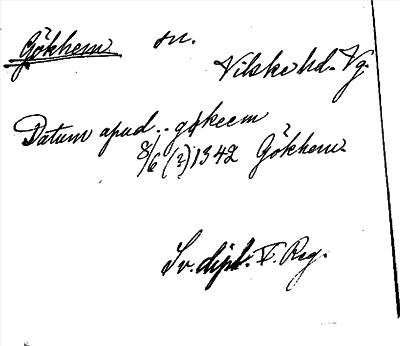 Gökhem sn.
Vilske hd. Vg.
Datum apud .. gøkeem
8/6 (?) 1342 Gökhem.
Sv. dipl. V. Reg.